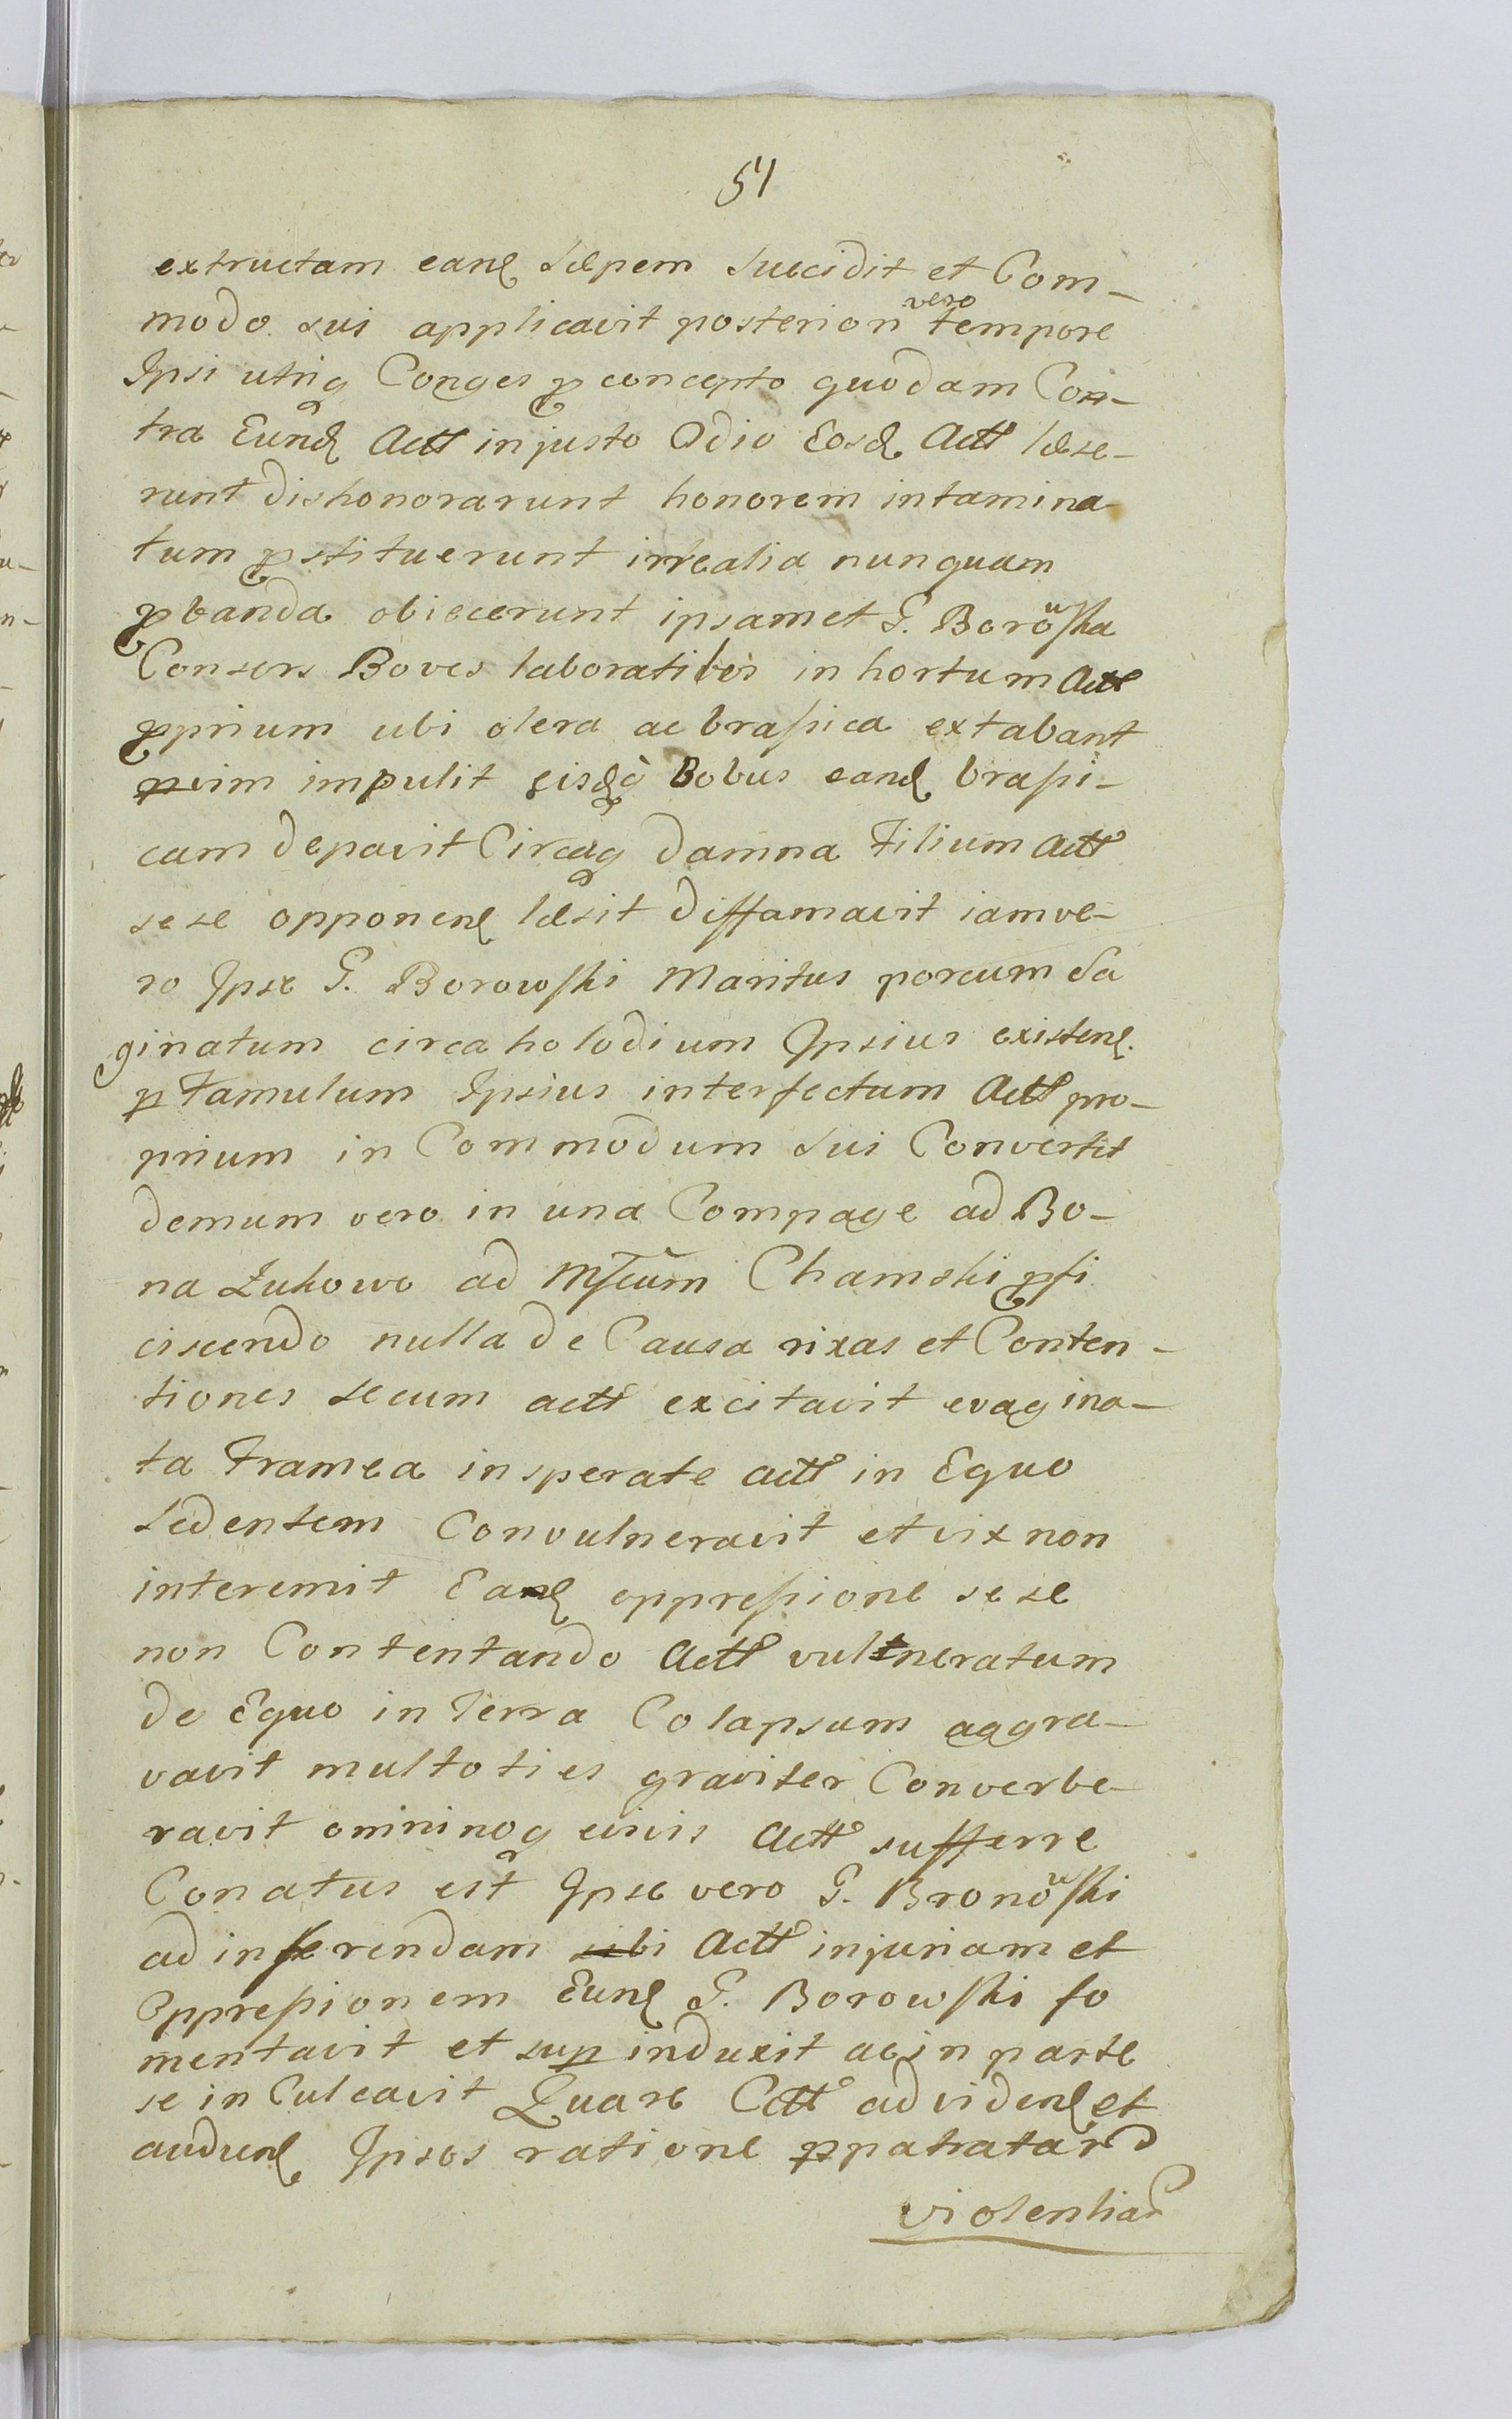 51
extructam eand sæpem succidit et Com-
modo sui applicavit posteriori vero tempore
Ipsi utriq Conges p concepto quodam Con-
tra Eund Actt injusto Odio Eosd Actt læse-
runt dishonorarunt honorem intamina
tum pstituerunt irrealia nunquam
pbanda obiecerunt ipsamet G. Borowska
Consors Boves laboratibes in hortum Actt
pprium ubi olera ac brassica extabant
vim impulit eisdq Bobus eand brassi-
cam depavit Circaq damna Filium Actt
sese opponend læsit diffamavit iamve-
ro Ipse G. Borowski Maritus porcum sa
ginatum circa holodium Ipsius existend.
p Famulum Ipsius interfectum Actt pro-
prium in Commodum sui Convertit
demum vero in una Compage ad Bo-
na Zukowo ad Mfcum Chamski pfi
ciscendo nulla de Causa rixas et Conten-
tiones secum actt excitavit evagina-
ta Framea insperate actt in Equo
sedentem Convulneravit et vix non
interemit Eand oppressione sese
non Contentando Actt vulneratum
de Equo in Terra Colapsum aggra-
vavit multoties graviter Converbe
ravit omninoq eivis Actt sufferre
Conatus est Ipse vero G. Bronowski
ad inferendam sibi Actt injuriam et
Oppressionem Eund G. Borowski fo
mentavit et sup induxit ac in parte
se inculcavit Quare Citt ad vidend et
audiend Ipsos ratione ppatratar
violentiar